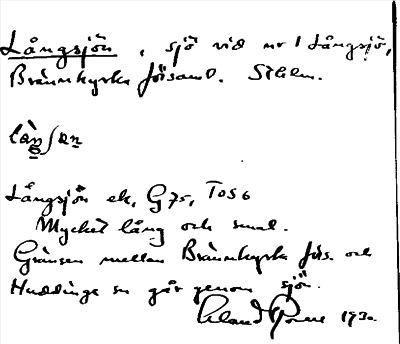 Långsjön, sjö vid nr 1 Långsjö,
Brännkyrka församl. Sthlm.
Långsjön ek. G75, T056
Mycket lång och smal.
Gränsen mellan Brännkyrka förs. och
Huddinge sn går genom sjön.
1930